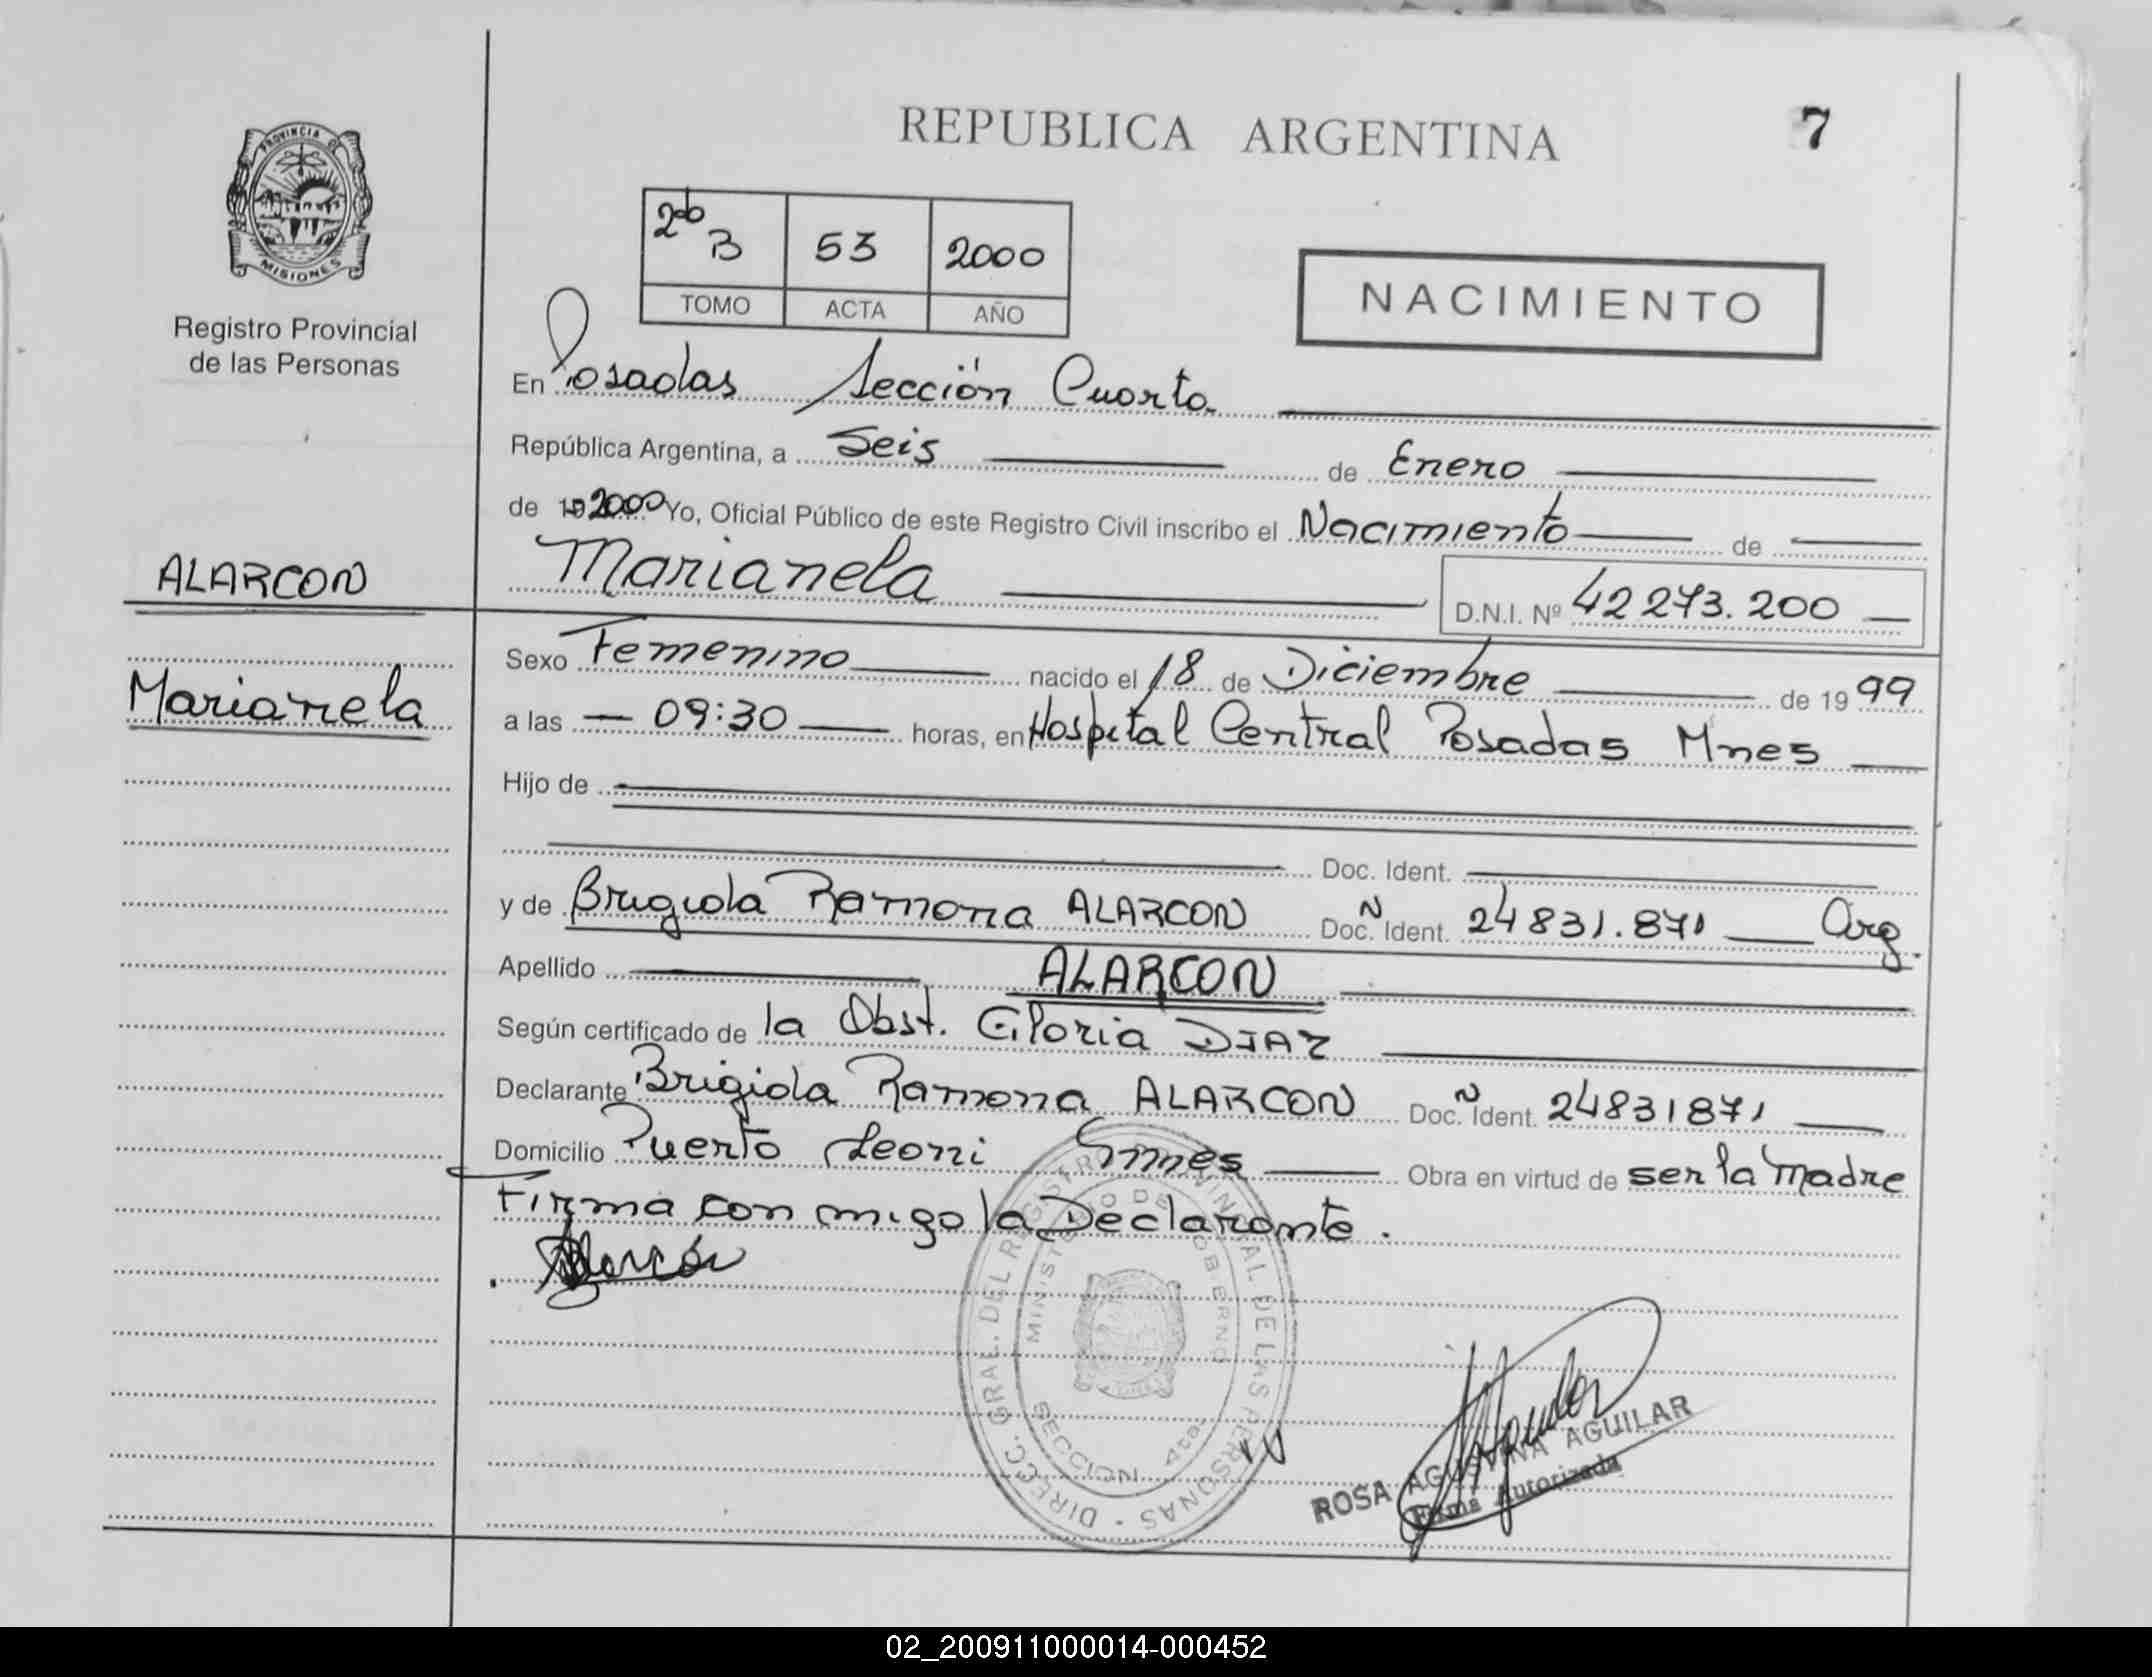 REPUBLICA ARGENTINA
7
PROVINCIA DE
MISIONES
Registro Provincial
de las Personas
2do B 53 2000
TOMO ACTA AÑO
NACIMIENTO
En Posadas Sección Cuarta
República Argentina, a Seis de Enero
de 19 2000 Yo, Oficial Público de este Registro Civil inscribo el Nacimiento de
ALARCON
Marianela D.N.I. Nº 42 273.200
Sexo Femenino nacido el 18 de Diciembre de 19 99
Marianela
a las 09:30 horas, en Hospital Central Posadas Mnes
Hijo de
Doc. Ident.
y de Brigida Ramona ALARCON Doc. Ident. Ñ 24831.871 Arg.
Apellido ALARCON
Según certificado de la Obst. Gloria DIAZ
Declarante Brigida Ramona ALARCON Doc. Ident. Ñ 24831871
Domicilio Puerto Leoni Mnes Obra en virtud de ser la Madre
Firma con migo la Declarante.
Alarcón
DIRECC. GRAL. DEL REGISTRO PROVINCIAL DE LAS PERSONAS
MINISTERIO DE GOBIERNO
SECCION 4ta.
ROSA AGUSTINA AGUILAR
Firma Autorizada
02_200911000014-000452